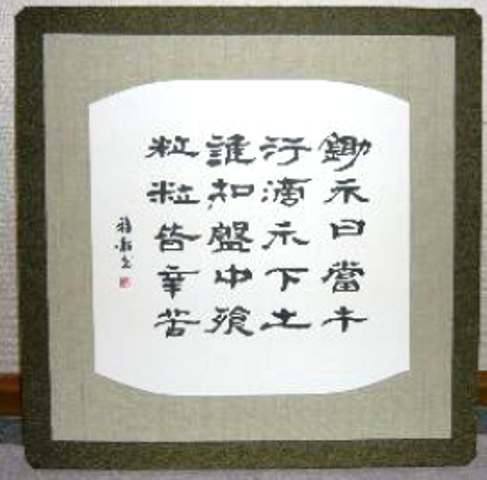 鋤禾日當午
汗滴禾下土
誰知盤中飱
粒粒皆辛苦